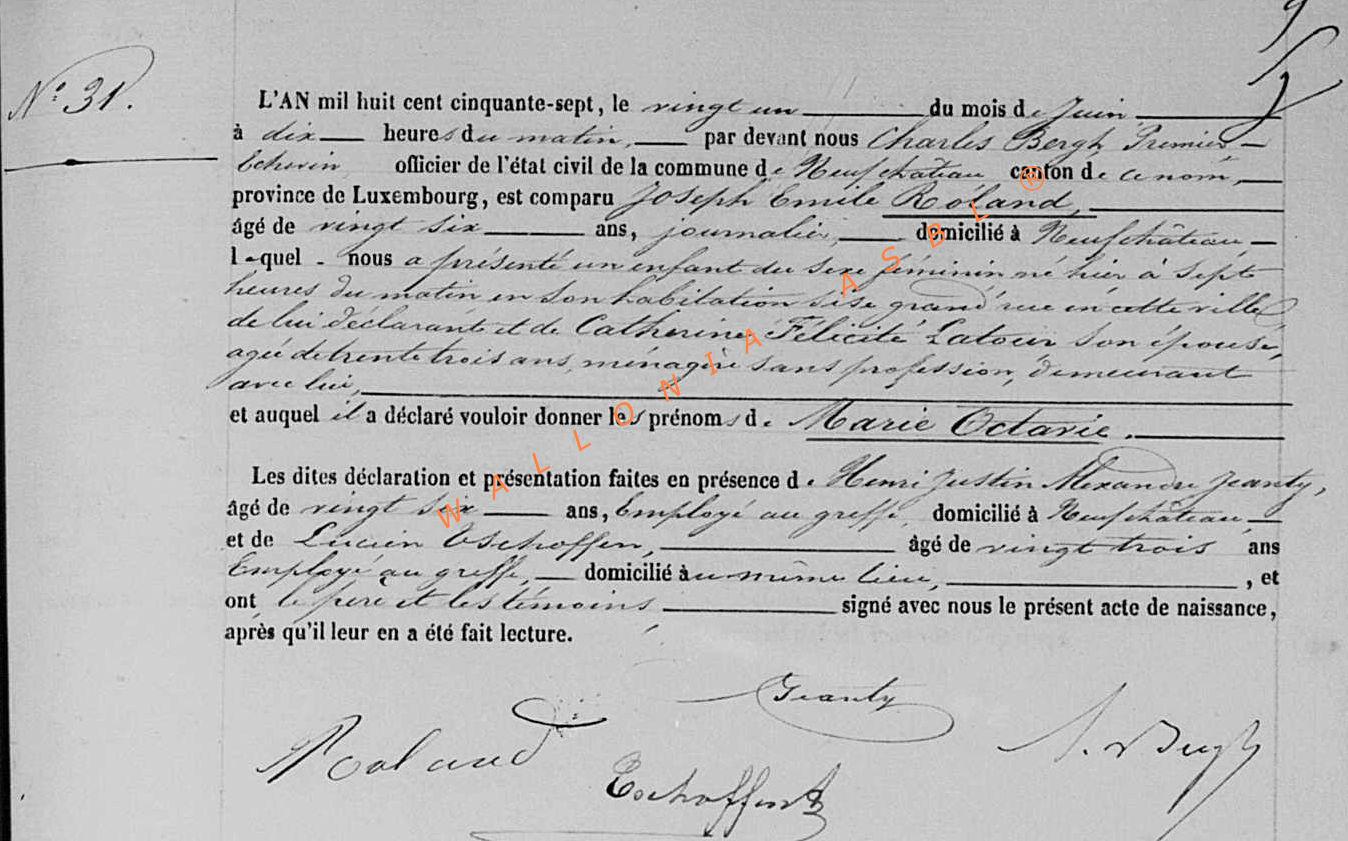 N.° 31.
L'AN mil huit cent cinquante-sept, le vingt un du mois de Juin
à dix heures du matin, par devant nous Charles Bergh Premier
Echevin officier de l'état civil de la commune de Neufchâteau canton de ce nom,
province de Luxembourg, est comparu Joseph Emile Roland,
âgé de vingt six ans, journalier, domicilié à Neufchâteau
lequel nous a présenté un enfant du sexe féminin né hier à sept
heures du matin en son habitation sise grand'rue en cette ville
de lui déclarant et de Catherine Félicité Latour son épouse,
agée de trente trois ans, ménagère sans profession, demeurant
avec lui,
et auquel il a déclaré vouloir donner les prénoms de Marie Octavie.
Les dites déclaration et présentation faites en présence de Henri Justin Alexandre Jeanty,
âgé de vingt six ans, Employé au greffe, domicilié à Neufchâteau,
et de Lucien Tschoffen, âgé de vingt trois ans
Employé au greffe, domicilié au même lieu, , et
ont le père et les témoins signé avec nous le présent acte de naissance,
après qu'il leur en a été fait lecture.
Jeanty
Roland
Tschoffen
Bergh
WALLONIA ASBL ®